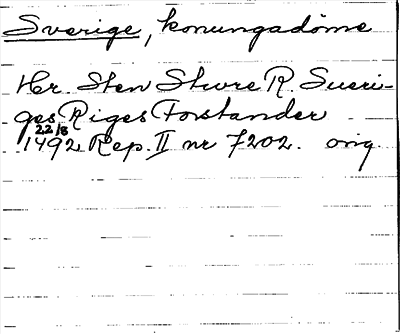 Sverige, konungadöme
Hr. Sten Sture R. Sueri-
ges Riges Forstander
22/8
1492 Rep. II nr 7202. orig